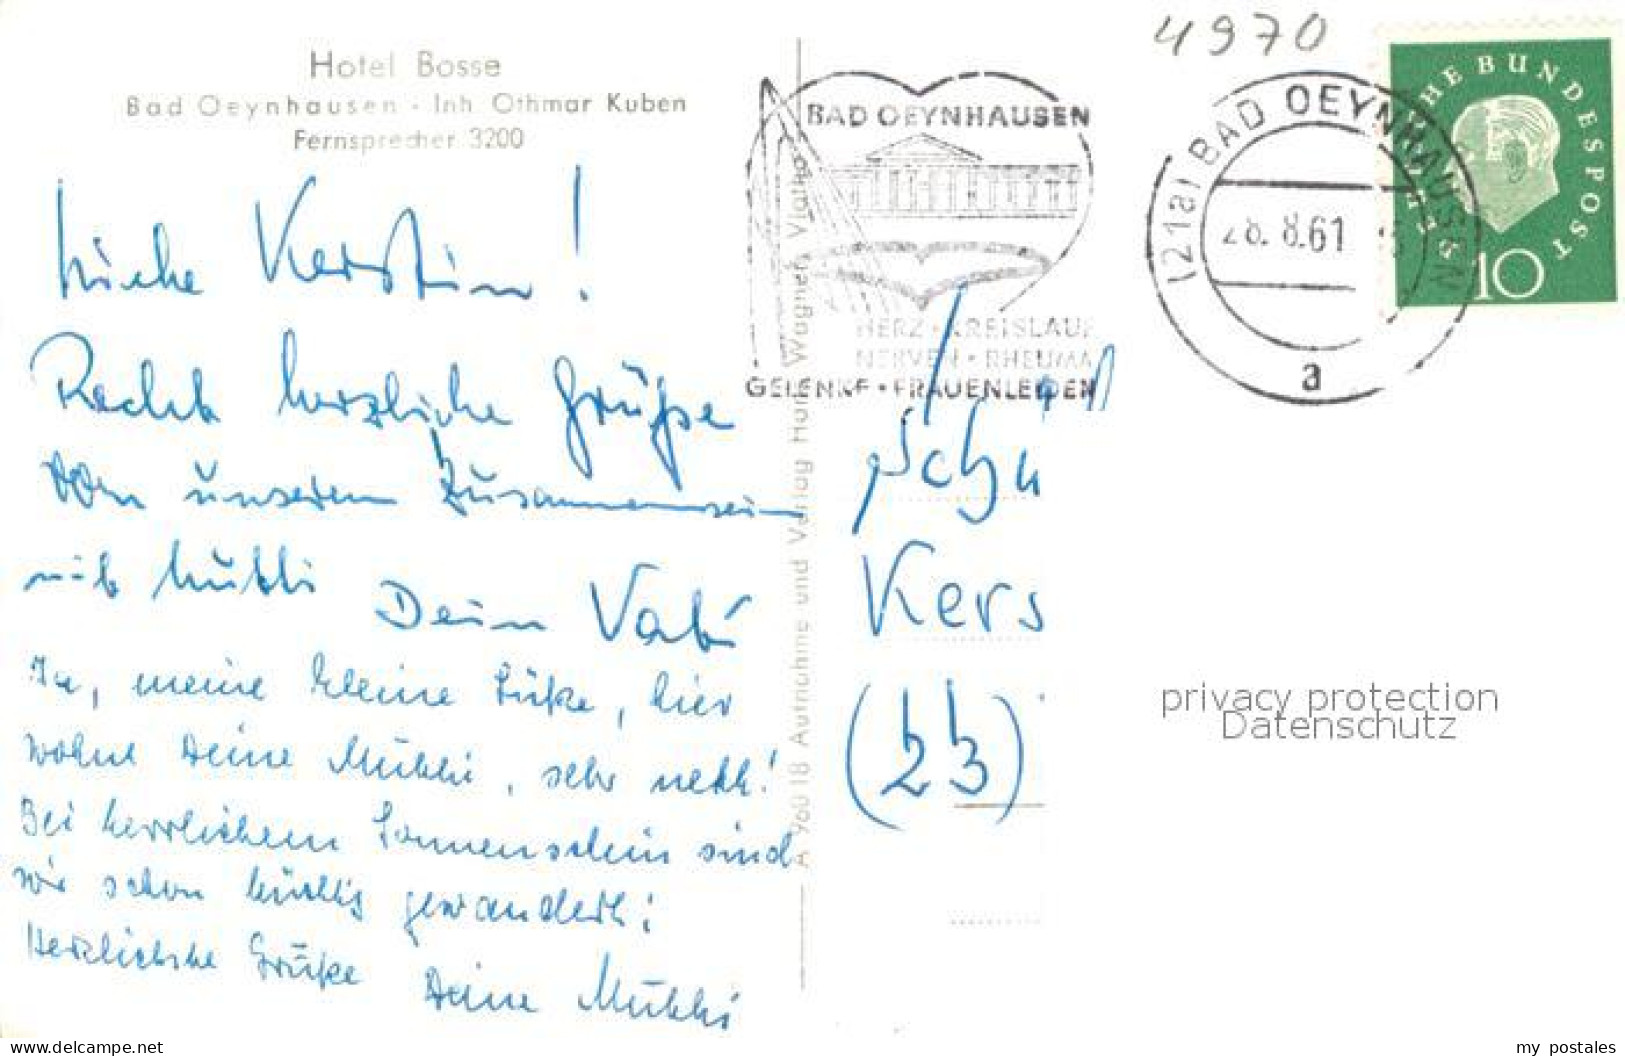 Hotel Bosse
Bad Oeynhausen - Inh. Othmar Kuben
Fernsprecher 3200
4970
BAD OEYNHAUSEN
HERZ • KREISLAUF
NERVEN • RHEUMA
GELENKE • FRAUENLEIDEN
(21a) BAD OEYNHAUSEN
28. 8.61
a
DEUTSCHE BUNDESPOST
10
Kerstin!
Recht herzliche Grüße
von unserem Zusammensein
mit Mutti
Dein Vati
Ja, meine kleine Süße, hier
wohnt Deine Mutti, sehr nett!
Bei herrlichem Sonnenschein sind
wir schon tüchtig gewandert!
Herzlichste Grüße
Deine Mutti
A 960 18 Aufnahme und Verlag Hans Wagner, Vlotho
Schu
Kers
(23)
privacy protection
Datenschutz
www.delcampe.net
my_postales